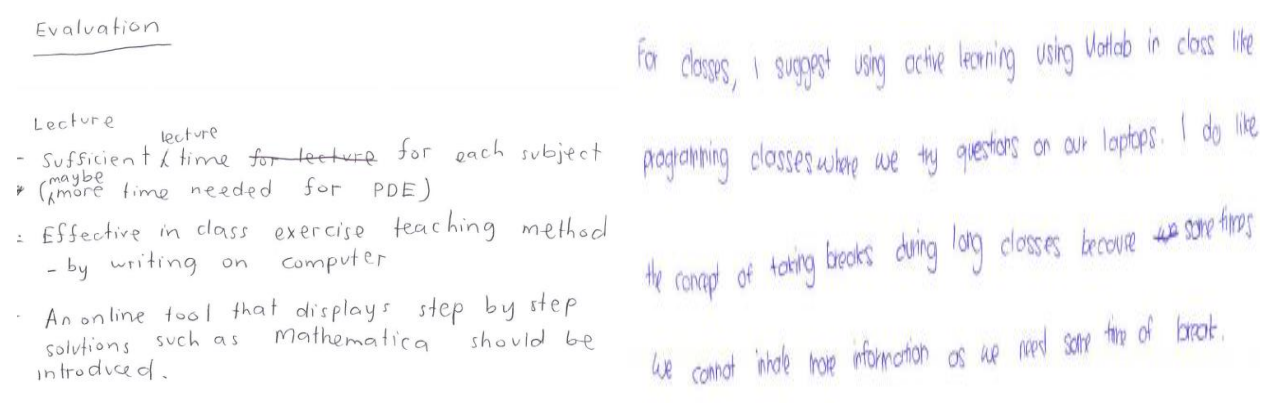 Evaluation
Lecture
- Sufficient lecture time for lecture for each subject
* (maybe more time needed for PDE)
: Effective in class exercise teaching method
- by writing on computer
· An online tool that displays step by step
solutions such as Mathematica should be
introduced.
For classes, I suggest using active learning using Matlab in class like
programming classes where we try questions on our laptops. I do like
the concept of taking breaks during long classes because we sometimes
we cannot inhale more information as we need some time of break.